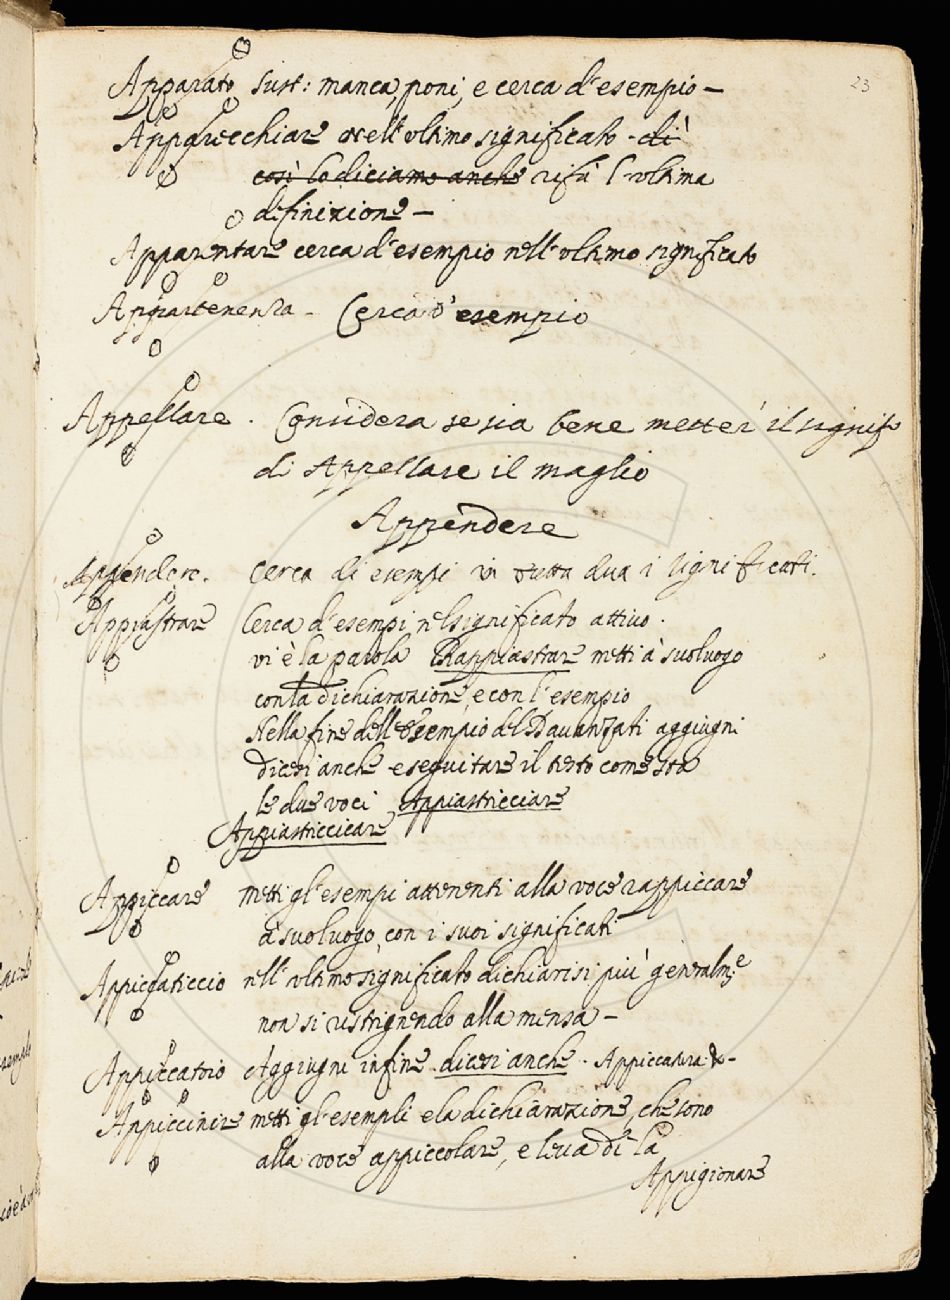 23
Apparato sust: manca, poni, e cerca d'esempio –
Apparecchiare nell'ultimo significato - di
così lo diciamo anche rifà l'ultima
definizione –
Apparentare cerca d'esempio nell'ultimo significato
Appartenenza - Cerca d'esempio
Appellare. Considera se sia bene metter il signif.
di Appellare il maglio
Appendere
Appendere. Cerca di esempi in tutta dua i significati.
Appiastrare Cerca d'esempi nel significato attivo.
vi è la parola Rappiastrare metti à suo luogo
con la dichiarazione, e con l'esempio
Nella fine dell'esempio del Davanzati aggiugni
dicesi anche e seguitare il testo come sta
le due voci Appiastricciare
Appiastriccicare
Appiccare metti gl'esempi attenenti alla voce rappiccare
à suo luogo, con i suoi significati
Appiccaticcio nell'ultimo significato dichiarisi più generalm:e
non si ristrignendo alla mensa –
Appiccatoio Aggiugni in fine dicesi anche. Appiccatura &-
Appiccinire metti gl'esempli e la dichiarazione, che sono
alla voce appiccolare, e leva di là
Appigionare